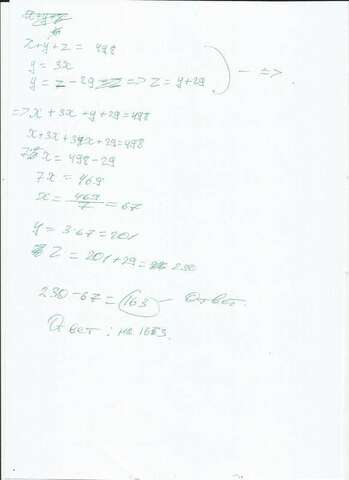 x+y+z = 498
y = 3x
y = z - 29 => z = y+29
=> x + 3x + y + 29 = 498
x+3x+3x+29=498
7x = 498-29
7x = 469
x = 469/7 = 67
y = 3·67 = 201
z = 201+29 = 230
230-67 = 163 - Ответ.
Ответ: на 163.